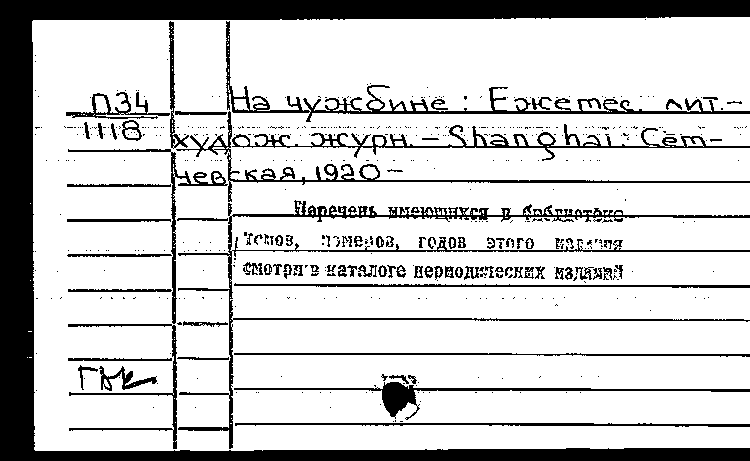 П34
1118
На чужбине : Ежемес. лит.-
худож. журн. – Shanghai : Сет-
чевская, 1920 –
Перечень имеющихся в библиотеке
томов, номеров, годов этого издания
смотри в каталоге периодических изданий